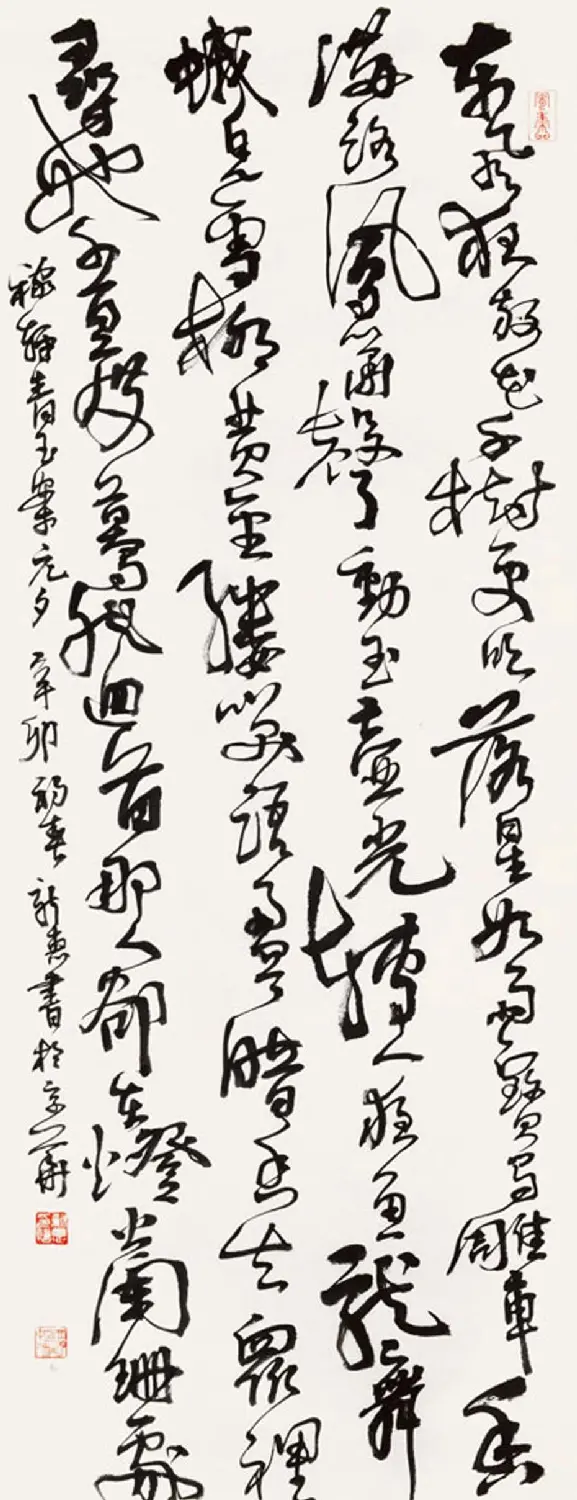 東風夜放花千樹更吹落星如雨寶馬雕車香
滿路鳳簫聲動玉壺光轉一夜魚龍舞
蛾兒雪柳黃金縷笑語盈盈暗香去衆裡
尋他千百度驀然迴首那人卻在燈火闌珊處
稼軒青玉案元夕 辛卯初春 書於京華